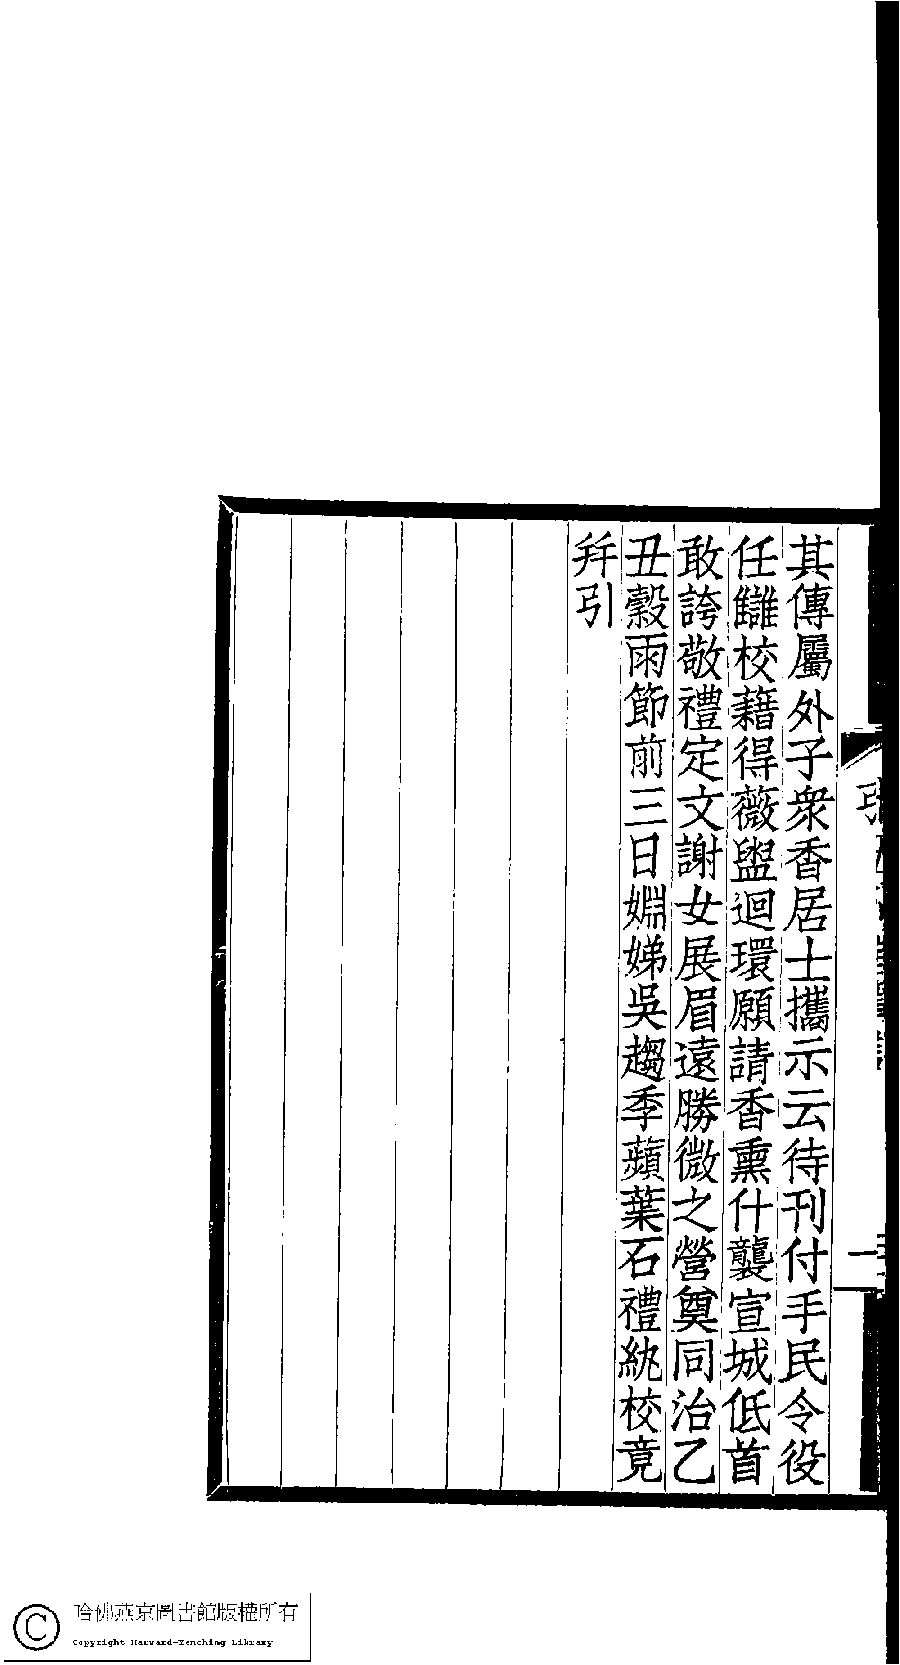 其傳屬外子衆香居士攜示云待刊付手民令役
任讎校藉得薇盥迴環願請香熏什襲宣城低首
敢誇敬禮定文謝女展眉遠勝微之營奠同治乙
丑穀雨節前三日婣娣吳趨季蘋葉石禮紈校竟
幷引
引
一
哈佛燕京圖書館版權所有
Copyright Harvard-Yenching Library